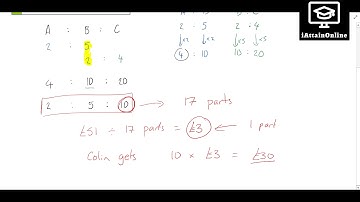 A : B : C
2 : 5
2 : 4
4 : 10 : 20
2 : 5 : 10 → 17 parts
£51 ÷ 17 parts = £3 ← 1 part
Colin gets 10 × £3 = £30
2 : 5 2 : 4
↓×2 ↓×2 ↓×5 ↓×5
4 : 10 10 : 20
iAttainOnline